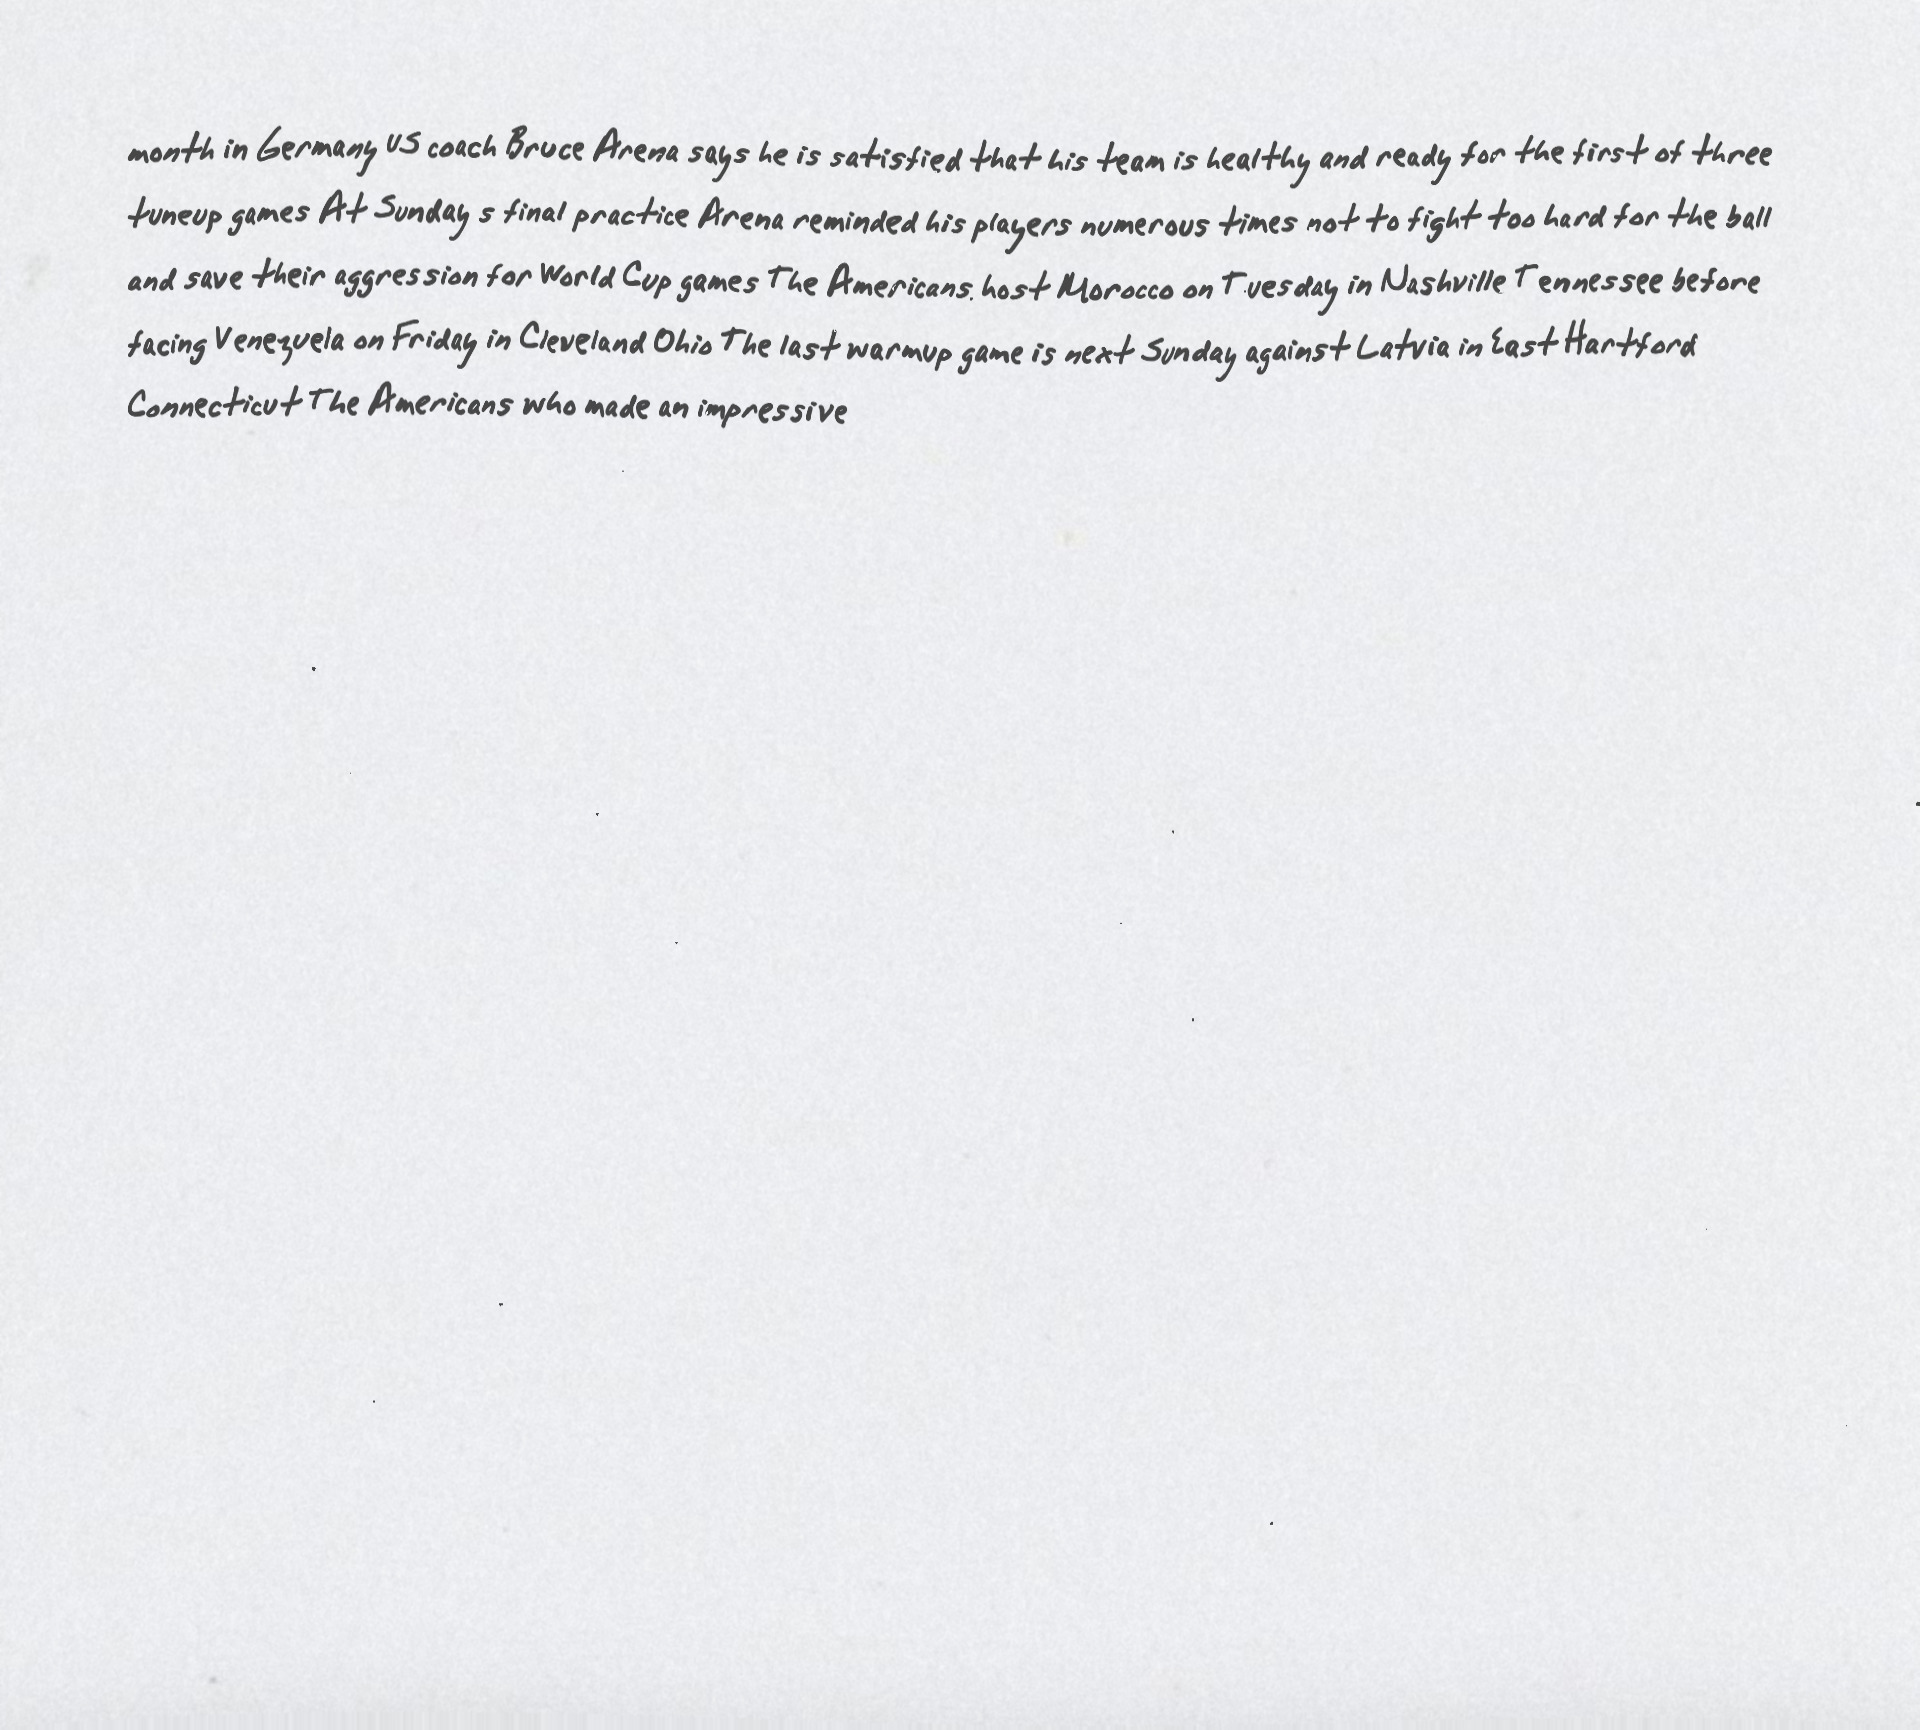 month in Germany US coach Bruce Arena says he is satisfied that his team is healthy and ready for the first of three
tuneup games At Sunday s final practice Arena reminded his players numerous times not to fight too hard for the ball
and save their aggression for World Cup games The Americans host Morocco on Tuesday in Nashville Tennessee before
facing Venezuela on Friday in Cleveland Ohio The last warmup game is next Sunday against Latvia in East Hartford
Connecticut The Americans who made an impressive